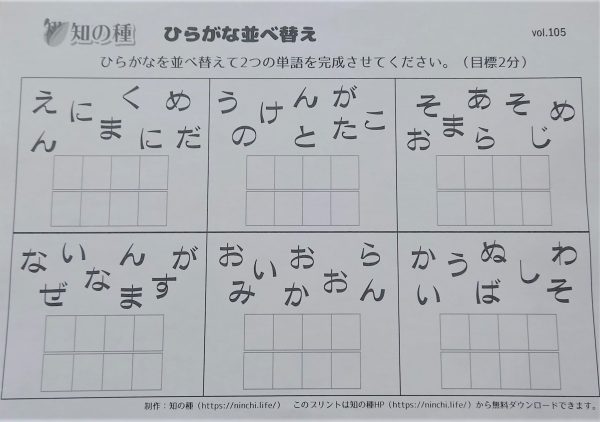 知の種 ひらがな並べ替え vol.105
ひらがなを並べ替えて2つの単語を完成させてください。（目標2分）
え に く め
ん ま に だ
う け ん が
の と た こ
そ あ そ め
お ま ら じ
な い ん が
ぜ な ま す
お い お ら
み か お ん
か う ぬ し わ
い ば そ
制作：知の種（https://ninchi.life/） このプリントは知の種HP（https://ninchi.life/）から無料ダウンロードできます。